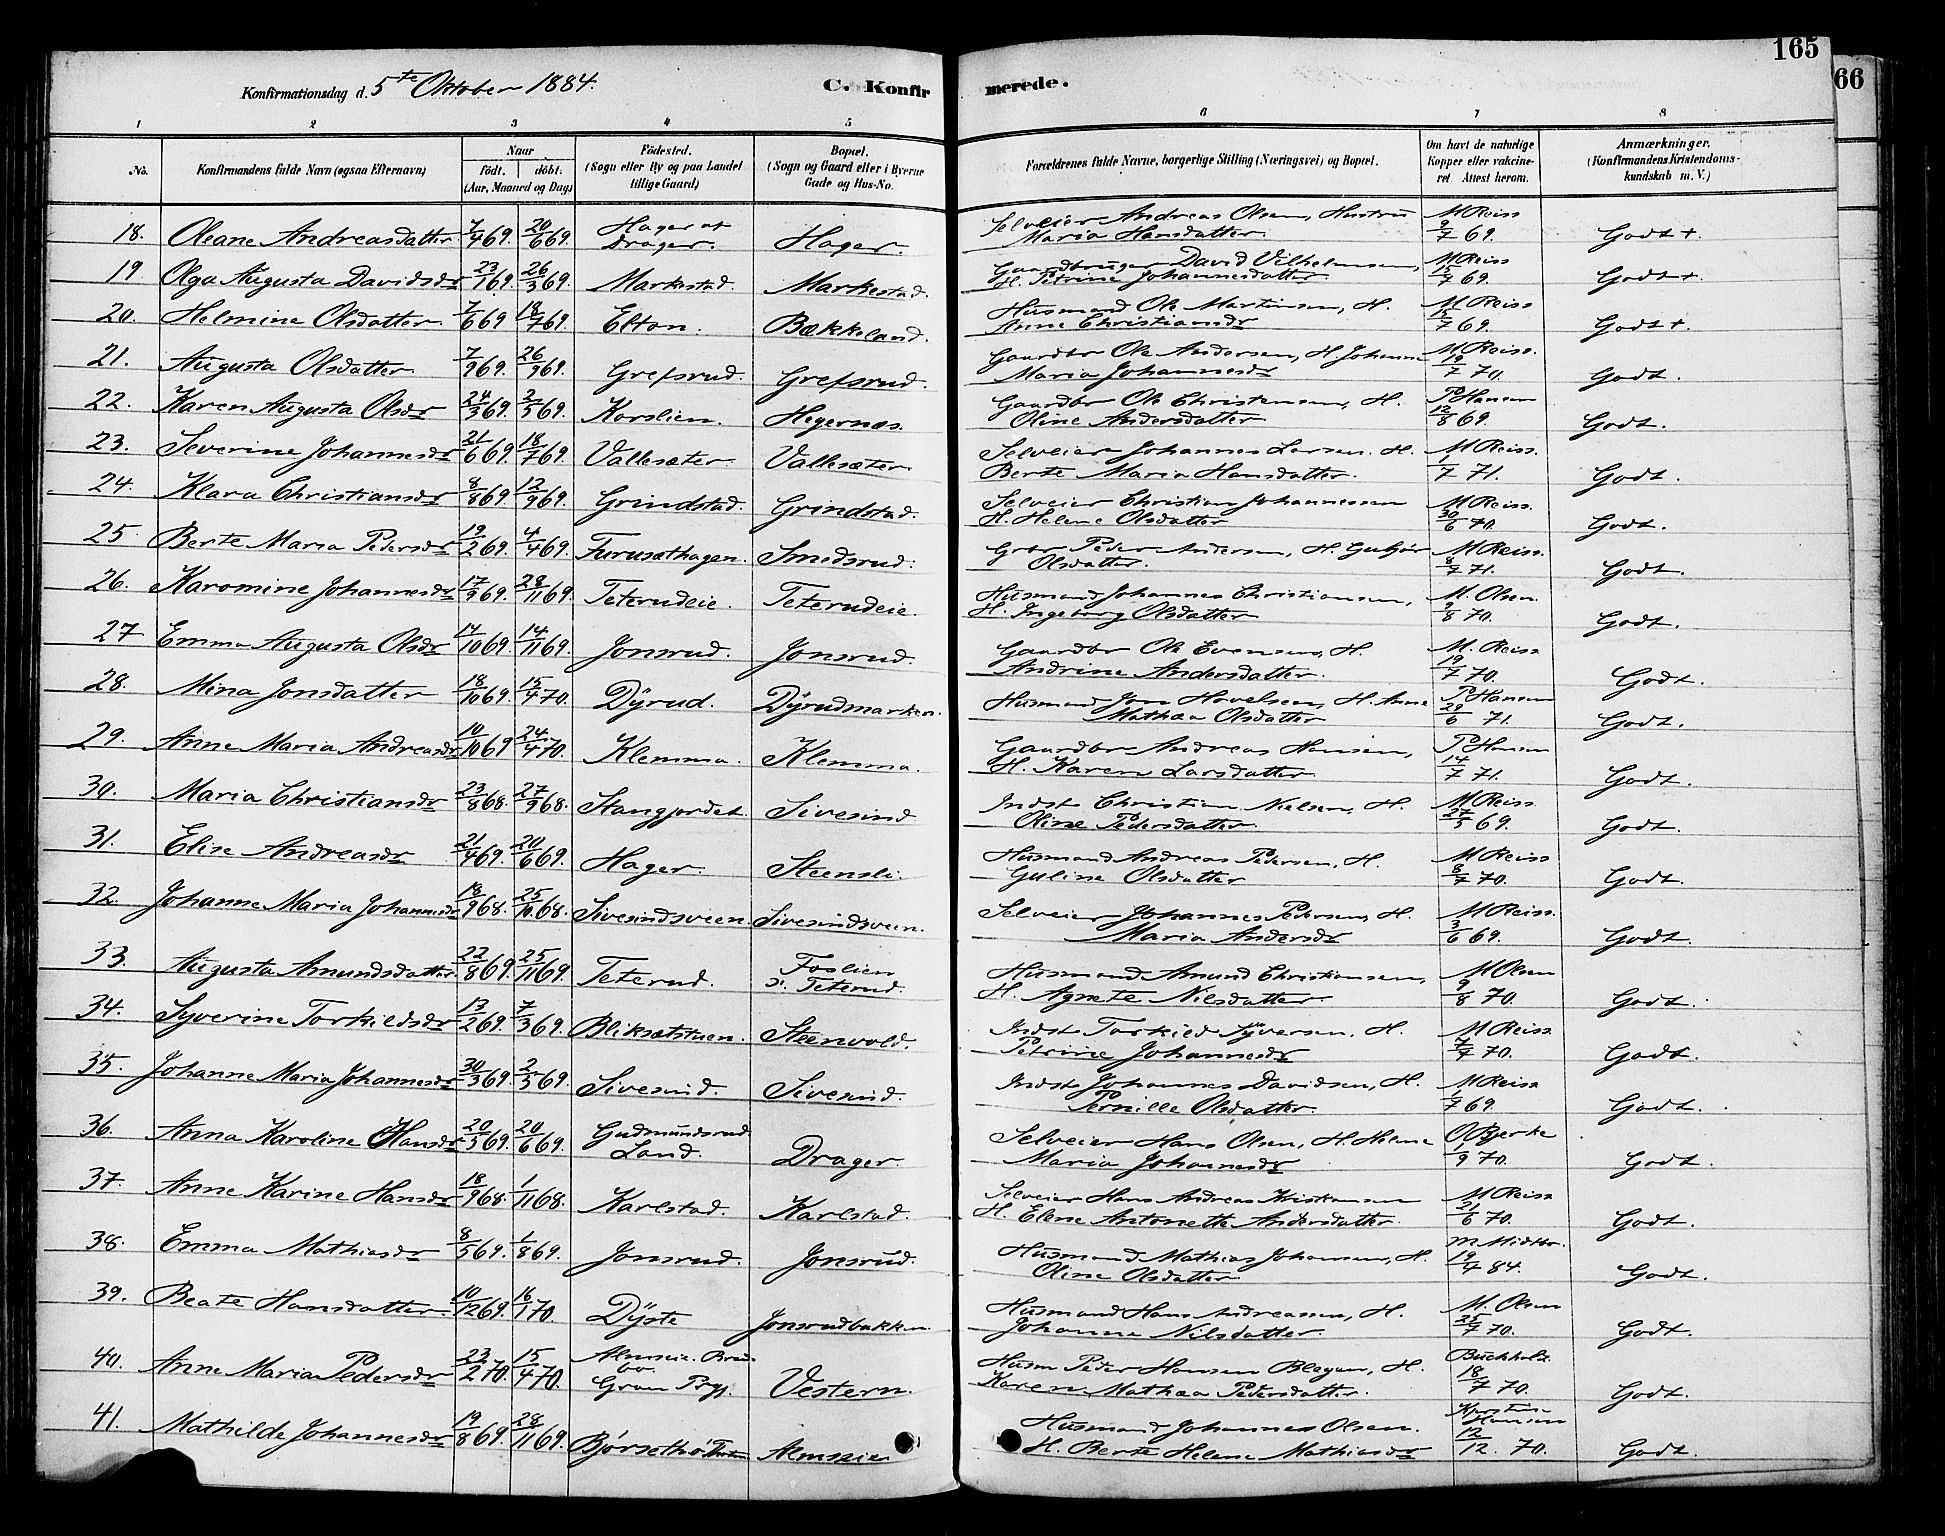 165
66
Konfirmationsdag d. 5te Oktober 1884.
C. Konfirmerede.
1 2 3 4 5 6 7 8
No. Konfirmandens fulde Navn (ogsaa Efternavn) Naar födt. döbt. (Aar, Maaned og Dag) Födested. (Sogn eller By og paa Landet tillige Gaard) Bopæl. (Sogn og Gaard eller i Byerne Gade og Hus-No. Forældrenes fulde Navne, borgerlige Stilling (Næringsvei) og Bopæl. Om havt de naturlige Kopper eller vakcineret Attest herom. Anmærkninger. (Konfirmandens Kristendomskundskab m. V.)
18. Oleane Andreasdatter 7/4 69. 20/6 69. Hager at Drager. Hager. Selveier Andreas Olsen, Hustru Maria Hansdatter. M Reiss 9/7 69. Godt +.
19. Olga Augusta Davidsdr 23/1 69. 26/3 69. Markestad. Markestad. Gaardbruger David Vilhelmsen, H. Petrine Johannesdatter M Reiss 15/7 69. Godt +
20. Helmine Olsdatter. 7/6 69 18/7 69. Elton. Bækkeland. Husmand Ole Martinsen, H. Anne Christiansdr M Reiss 15/7 69. Godt +.
21. Augusta Olsdatter 7/9 69. 26/9 69. Grefsrud. Grefsrud. Gaardbr Ole Andersen, H. Johanne Maria Johannesdr M Reiss. 19/7 70. Godt.
22. Karen Augusta Olsdr 24/3 69. 2/5 69. Korslien. Hegernæs. Gaardbr Ole Christensen, H. Oline Andersdatter P Hansen 12/8 69. Godt.
23. Severine Johannesdr 21/6 69. 18/7 69. Vallesæter. Vallesæter. Selveier Johannes Larsen. H. Berte Maria Hansdatter. M Reiss. 1/7 71. Godt.
24. Klara Christiansdr 8/8 69. 12/9 69. Grindstad. Grindstad. Selveier Christian Johannessen H. Helene Olsdatter M Reiss. 30/6 70. Godt.
25. Berte Maria Pedersdr 19/2 69. 4/4 69. Furusæthagen. Smedsrud. Grbr Peder Andersen, H. Gubjør Olsdatter. M Reiss. 8/7 71. Godt.
26. Karomine Johannesdr 17/9 69. 28/11 69. Teterudeie. Teterudeie. Husmand Johannes Christiansen, H. Ingeborg Olsdatter M. Olsen 9/8 70. Godt.
27 Emma Augusta Olsdr 14/10 69. 14/11 69. Jonsrud. Jonsrud. Gaardbr Ole Evensen, H. Andrine Andersdatter. M. Reiss 19/7 70. Godt.
28. Mina Jonsdatter 18/10 69. 15/4 70. Dÿrud. Dÿrudmarken. Husmand Jon Hovelsen, H. Anne Mathea Olsdatter P Hansen 29/6 71. Godt.
29. Anne Maria Andreasdr 10/10 69 24/4 70. Klemma. Klemma. Gaardbr Andreas Hansen, H. Karen Larsdatter. P Hansen 14/7 71. Godt.
30. Maria Christiansdr 23/8 68. 27/9 68. Stangjordet. Sivesind Indst Christian Nielsen, H. Oline Pedersdatter. M Reiss. 27/5 69. Godt.
31. Elise Andreasdr 21/4 69. 20/6 69. Hager. Steensli. Husmand Andreas Pedersen, H. Guline Olsdatter M Reiss 8/7 70. Godt.
32. Johanne Maria Johannesdr 18/9 68. 25/10 68. Sivesindsveen. Sivesindsveen. Selveier Johannes Pedersen, H. Maria Andersdr M Reiss. 3/6 69. Godt.
33. Augusta Amundsdatter. 22/8 69. 25/11 69. Teterud. Foslien Teterud. Husmand Amund Christiansen, H. Agnete Nilsdatter. M Olsen 9/8 70. Godt.
34. Syverine Torkildsdr 13/2 69. 7/3 69. Bliksætstuen. Steenvold. Indst Torkild Syversen. H. Petrine Johannesdr M Reiss 7/7 70. Godt.
35. Johanne Maria Johannesdr 30/3 69. 2/5 69. Sivesind. Sivesind. Indst Johannes Davidsen, H. Pernille Olsdatter. M Reiss 1/7 69. Godt.
36. Anna Karoline Hansdr 20/5 69. 20/6 69. Gudmundsrud Land. Drager. Selveier Hans Olsen, H. Helene Maria Johannesdr O Bjerke 1/9 70. Godt.
37. Anne Karine Hansdr 18/9 68. 1/11 68. Karlstad. Karlstad. Selveier Hans Andreas Kristiansen H. Elene Antonette Andersdatter. M Reiss 21/6 70. Godt.
38. Emma Mathiasdr 8/5 69. 1/8 69. Jonsrud. Jonsrud. Husmand Mathias Johansen, H. Oline Olsdatter. 19/4 84. Godt.
39. Beate Hansdatter. 10/12 69. 16/1 70. Dÿste Jonsrudbakken. Husmand Hans Andreassen, H. Johanne Nilsdatter. M. Olsen 25/7 70. Godt.
40. Anne Maria Pedersdr 23/2 70. 15/4 70. Gran Prgj. Vestern. Husm Peder Hansen H. Karen Mathea Petersdatter. Buchholz. 18/7 70. Godt.
41. Mathilde Johannesdr 19/8 69. 28/11 69. Almseie Husmand Johannes Olsen. H. Berte Helene Mathiasdr Hansen 12/12. 70. Godt.